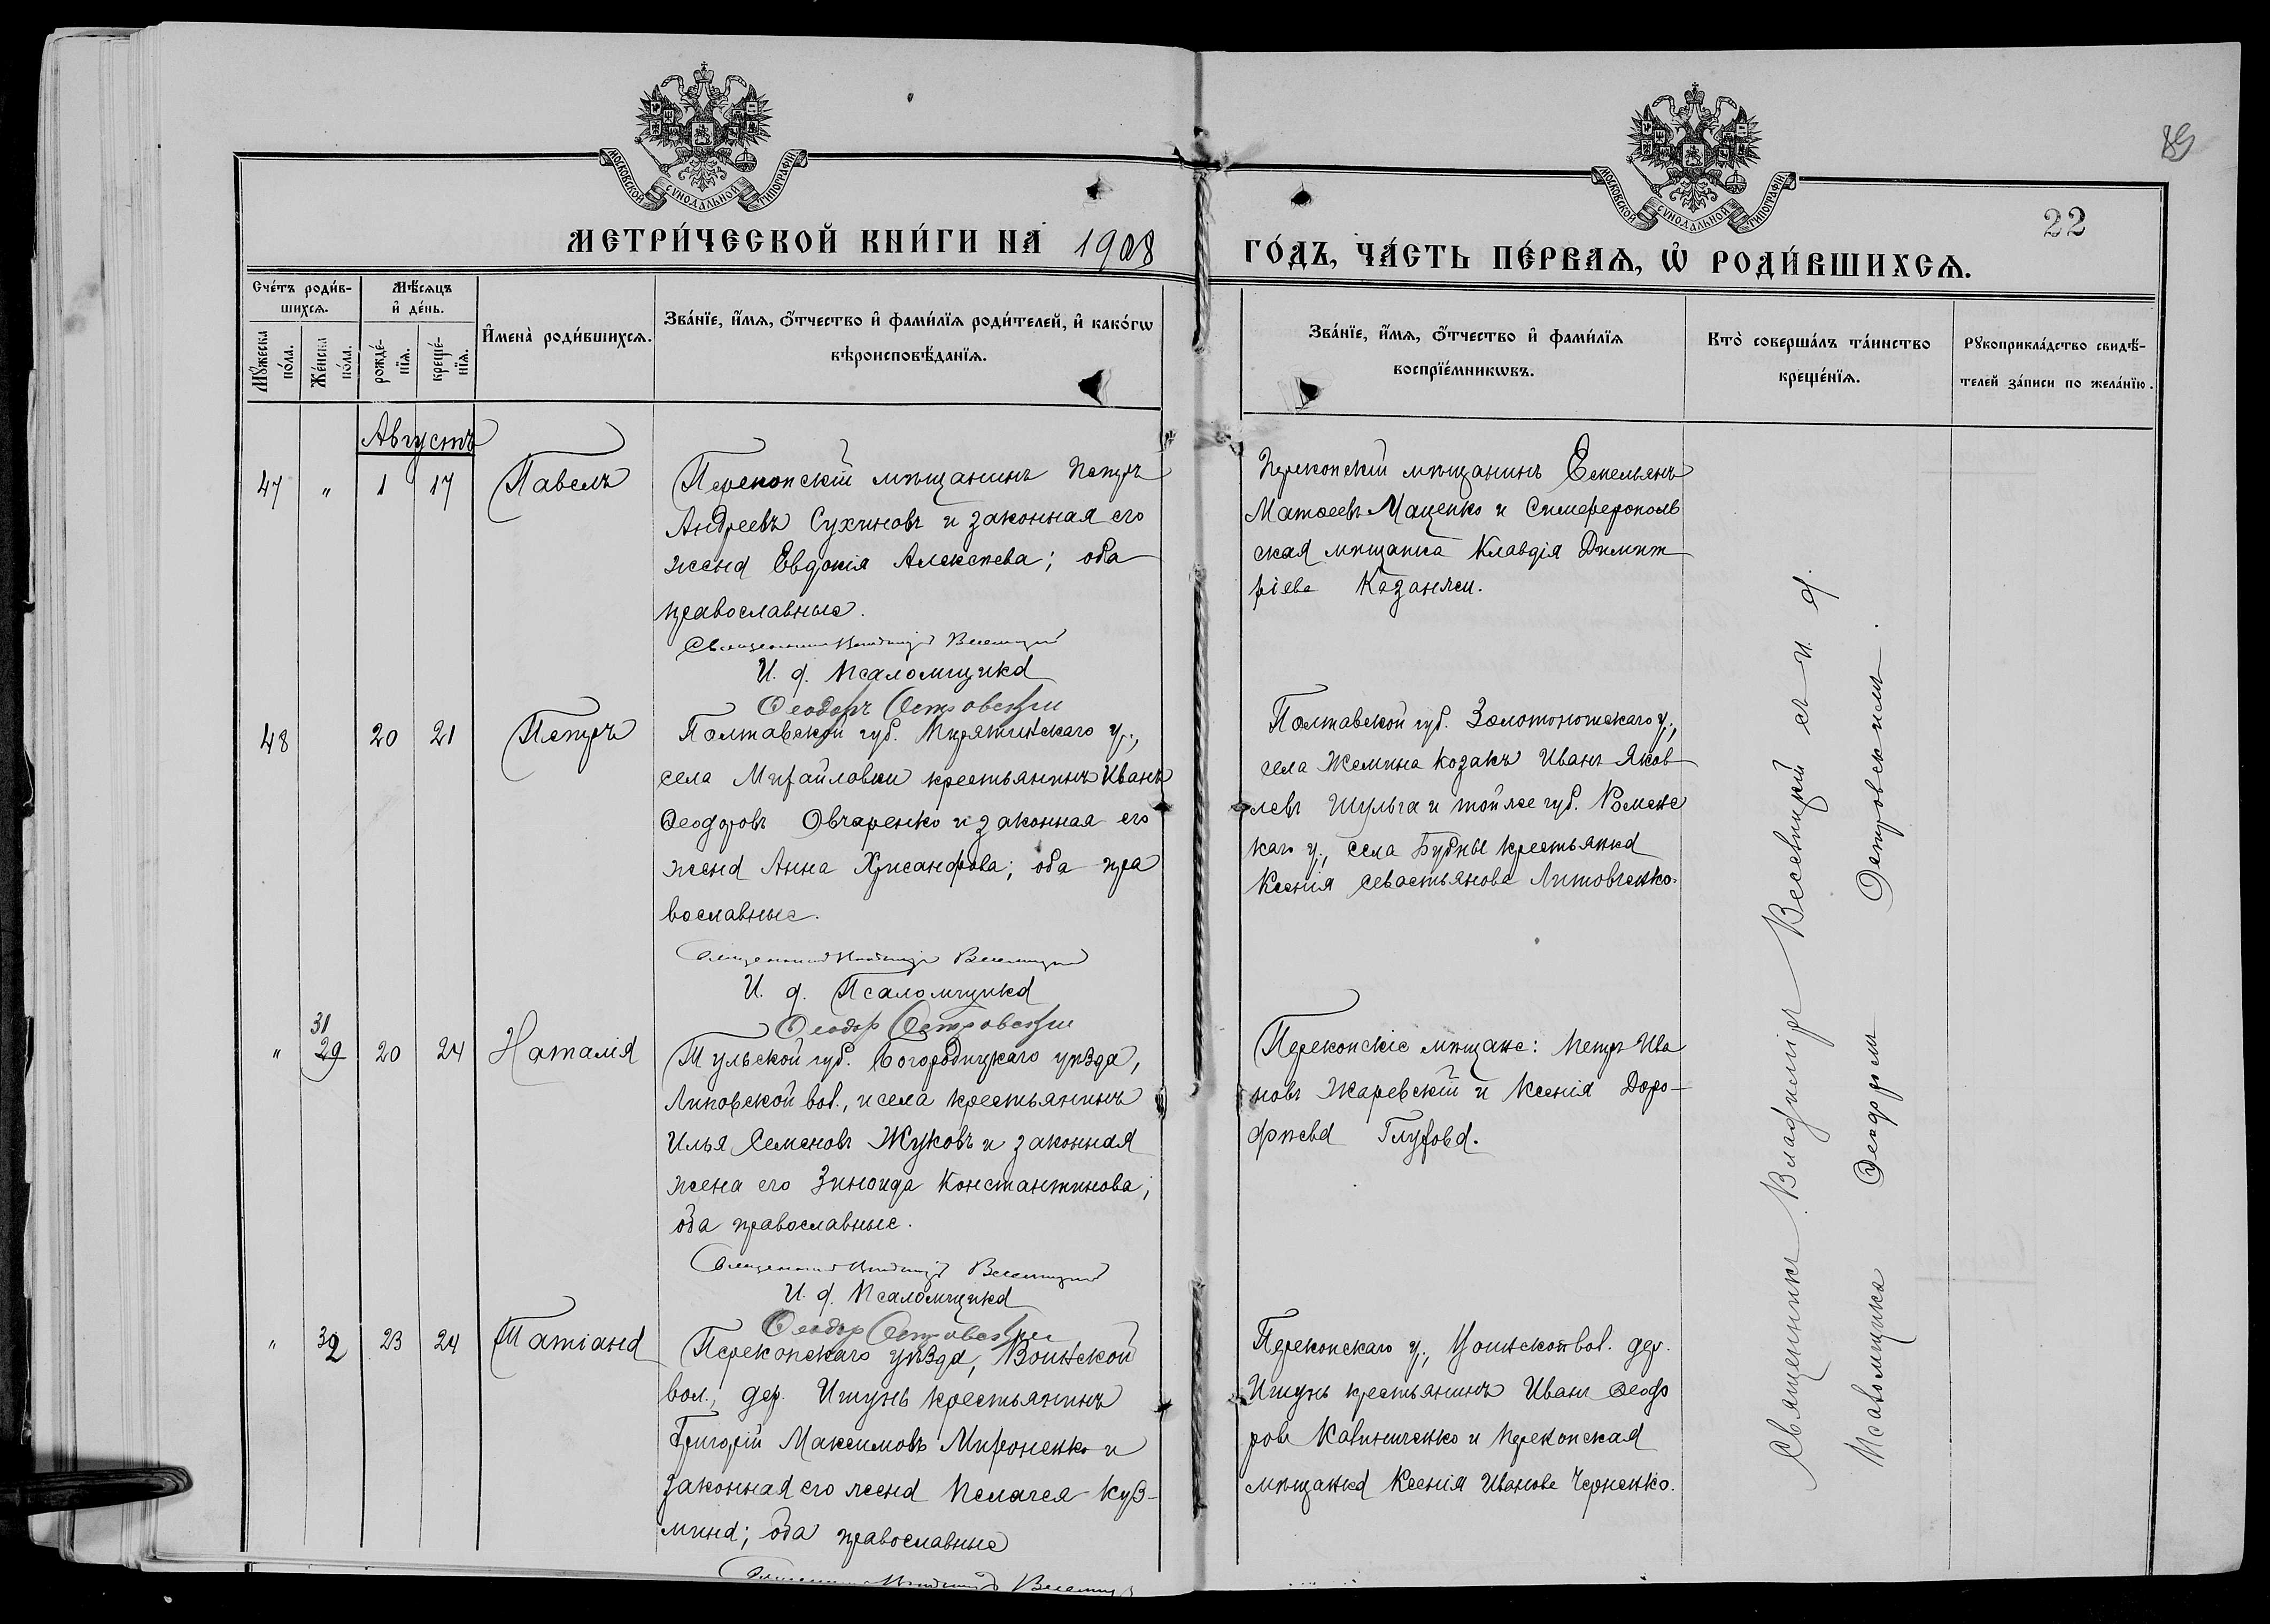 МОСКОВСКОЙ СѴНОДАЛЬНОЙ ТИПОГРАФІИ
МОСКОВСКОЙ СѴНОДАЛЬНОЙ ТИПОГРАФІИ
89
22
МЕТРИ́ЧЕСКОЙ КНИ́ГИ НА 1908
ГО́ДЪ, ЧА́СТЬ ПЕ́РВАѦ, Ѽ РОДИ́ВШИХСѦ.
Сче́тъ роди́в-
шихсѧ.
Мꙋ́жеска
по́ла.
Же́нска
по́ла.
Мѣ́сѧцъ
и҆ де́нь.
рожде́-
нїѧ.
креще́-
нїѧ.
И҆мена̀ роди́вшихсѧ.
Зва́нїе, и҆́мѧ, ѻ҆́тчество и҆ фами́лїѧ роди́телей, и҆ како́гѡ
вѣроисповѣ́данїѧ.
Зва́нїе, и҆́мѧ, ѻ҆́тчество и҆ фами́лїѧ
воспрїе́мникѡвъ.
Кто̀ соверша́лъ та́инство
креще́нїѧ.
Рꙋкоприкла́дство свидѣ́-
телей за́писи по жела́нїю.
Августъ
47 " 1 17 Павелъ
Перекопскій мѣщанинъ Петръ
Андреевъ Сухиновъ и законная его
жена Евдокія Алексѣева; оба
православные.
Священникъ Владиміръ Веселицкій
И. д. Псаломщика
Ѳеодоръ Островскій
Перекопскій мѣщанинъ Емельянъ
Матѳеевъ Маценко и Симферополь
ская мѣщанка Клавдія Димит
ріева Казанли.
48 20 21 Петръ
Полтавской губ. Пирятинскаго у.,
села Михайловки крестьянинъ Иванъ
Ѳеодоровъ Овчаренко и законная его
жена Анна Хрисанфова; оба пра
вославные.
Священникъ Владиміръ Веселицкій
И. д. Псаломщика
Ѳеодоръ Островскій
Полтавской губ. Золотоношскаго у.,
села Жемина козакъ Иванъ Яков
левъ Шульга и той же губ. Роменс
каго у., села Будны крестьянка
Ксенія Севастьянова Литовченко.
" 31
29 20 24 Наталія
Тульской губ. Богородицкаго уѣзда,
Липовской вол., и села крестьянинъ
Илья Семеновъ Жуковъ и законная
жена его Зиноида Константинова;
оба православные.
Священникъ Владиміръ Веселицкій
И. д. Псаломщика
Ѳеодоръ Островскій
Перекопскіе мѣщане: Петръ Ива
новъ Жаревскій и Ксенія Доро-
фѣева Глухова.
" 32 23 24 Татіана
Перекопскаго уѣзда, Воинской
вол., дер. Ишунь крестьянинъ
Григорій Максимовъ Мироненко и
законная его жена Пелагея Куз-
мина; оба православные
Священникъ Владиміръ Веселицкій
Перекопскаго у., Воинской вол. дер.
Ишунь крестьянинъ Иванъ Ѳеодо
ровъ Калиниченко и Перекопская
мѣщанка Ксенія Иванова Черненко.
Священникъ Владиміръ Веселицкій съ и. д.
Псаломщика Ѳеодоромъ Островскимъ.